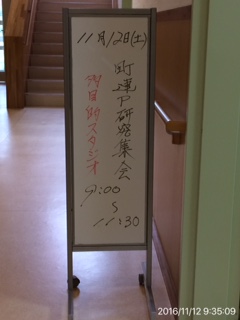 11月12日(土)
町連P研究集会
多目的スタジオ
9:00
〜
11:30
2016/11/12 9:35:09